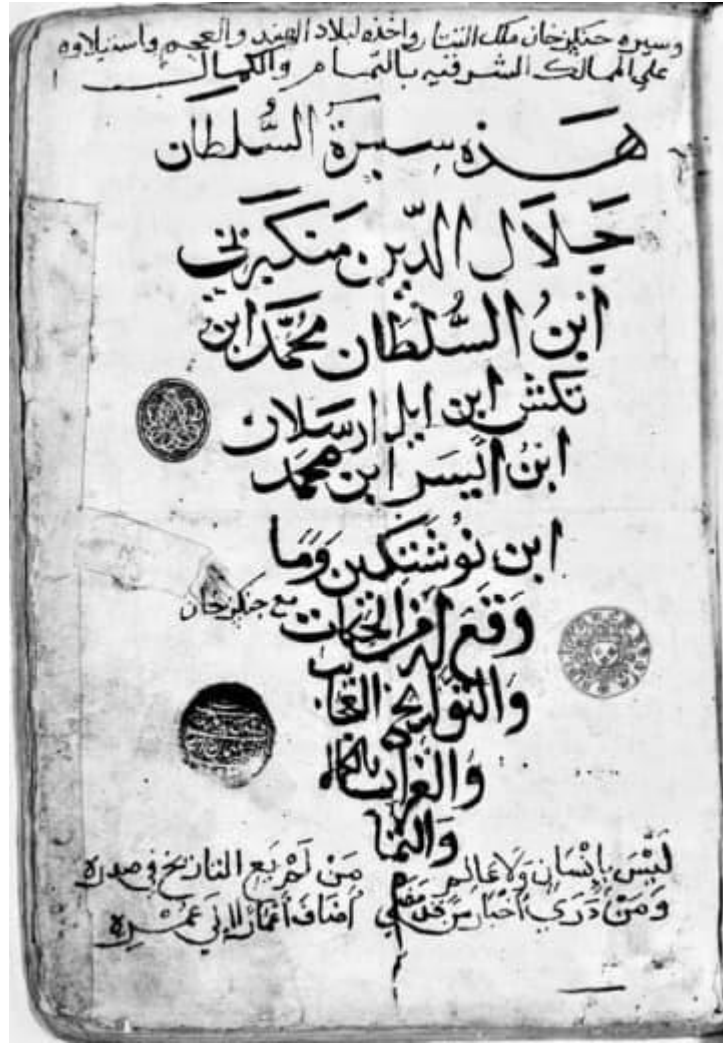 وسيره جنكيز خان ملك التتار واخذه لبلاد الهند والعجم واستيلاوه
علي الممالك الشرقيه بالتمام والكمال
هَذه سيرة السُّلطان
جَلَال الدِّين مَنكبرتي
ابنُ السُّلطان محمَّد ابن
تكش ابن ايل ارسلان
ابنُ اليسَز ابن محمد
ابن نوُشتكين وَمَا
وَقعَ لَه مَع جنكيز خان
وَالتوَاريخ
وَالغرَايب
وَالتمَا
م
لَيْسَ بإنْسَانٍ وَلَا عَالِمٍ مَنْ لَمْ يَعِ التاريخ في صدره
وَمَنْ دَرَي أخبَار مَن قد مضي أضَافَ أعْمَارًا إلي عُمْرِهِ